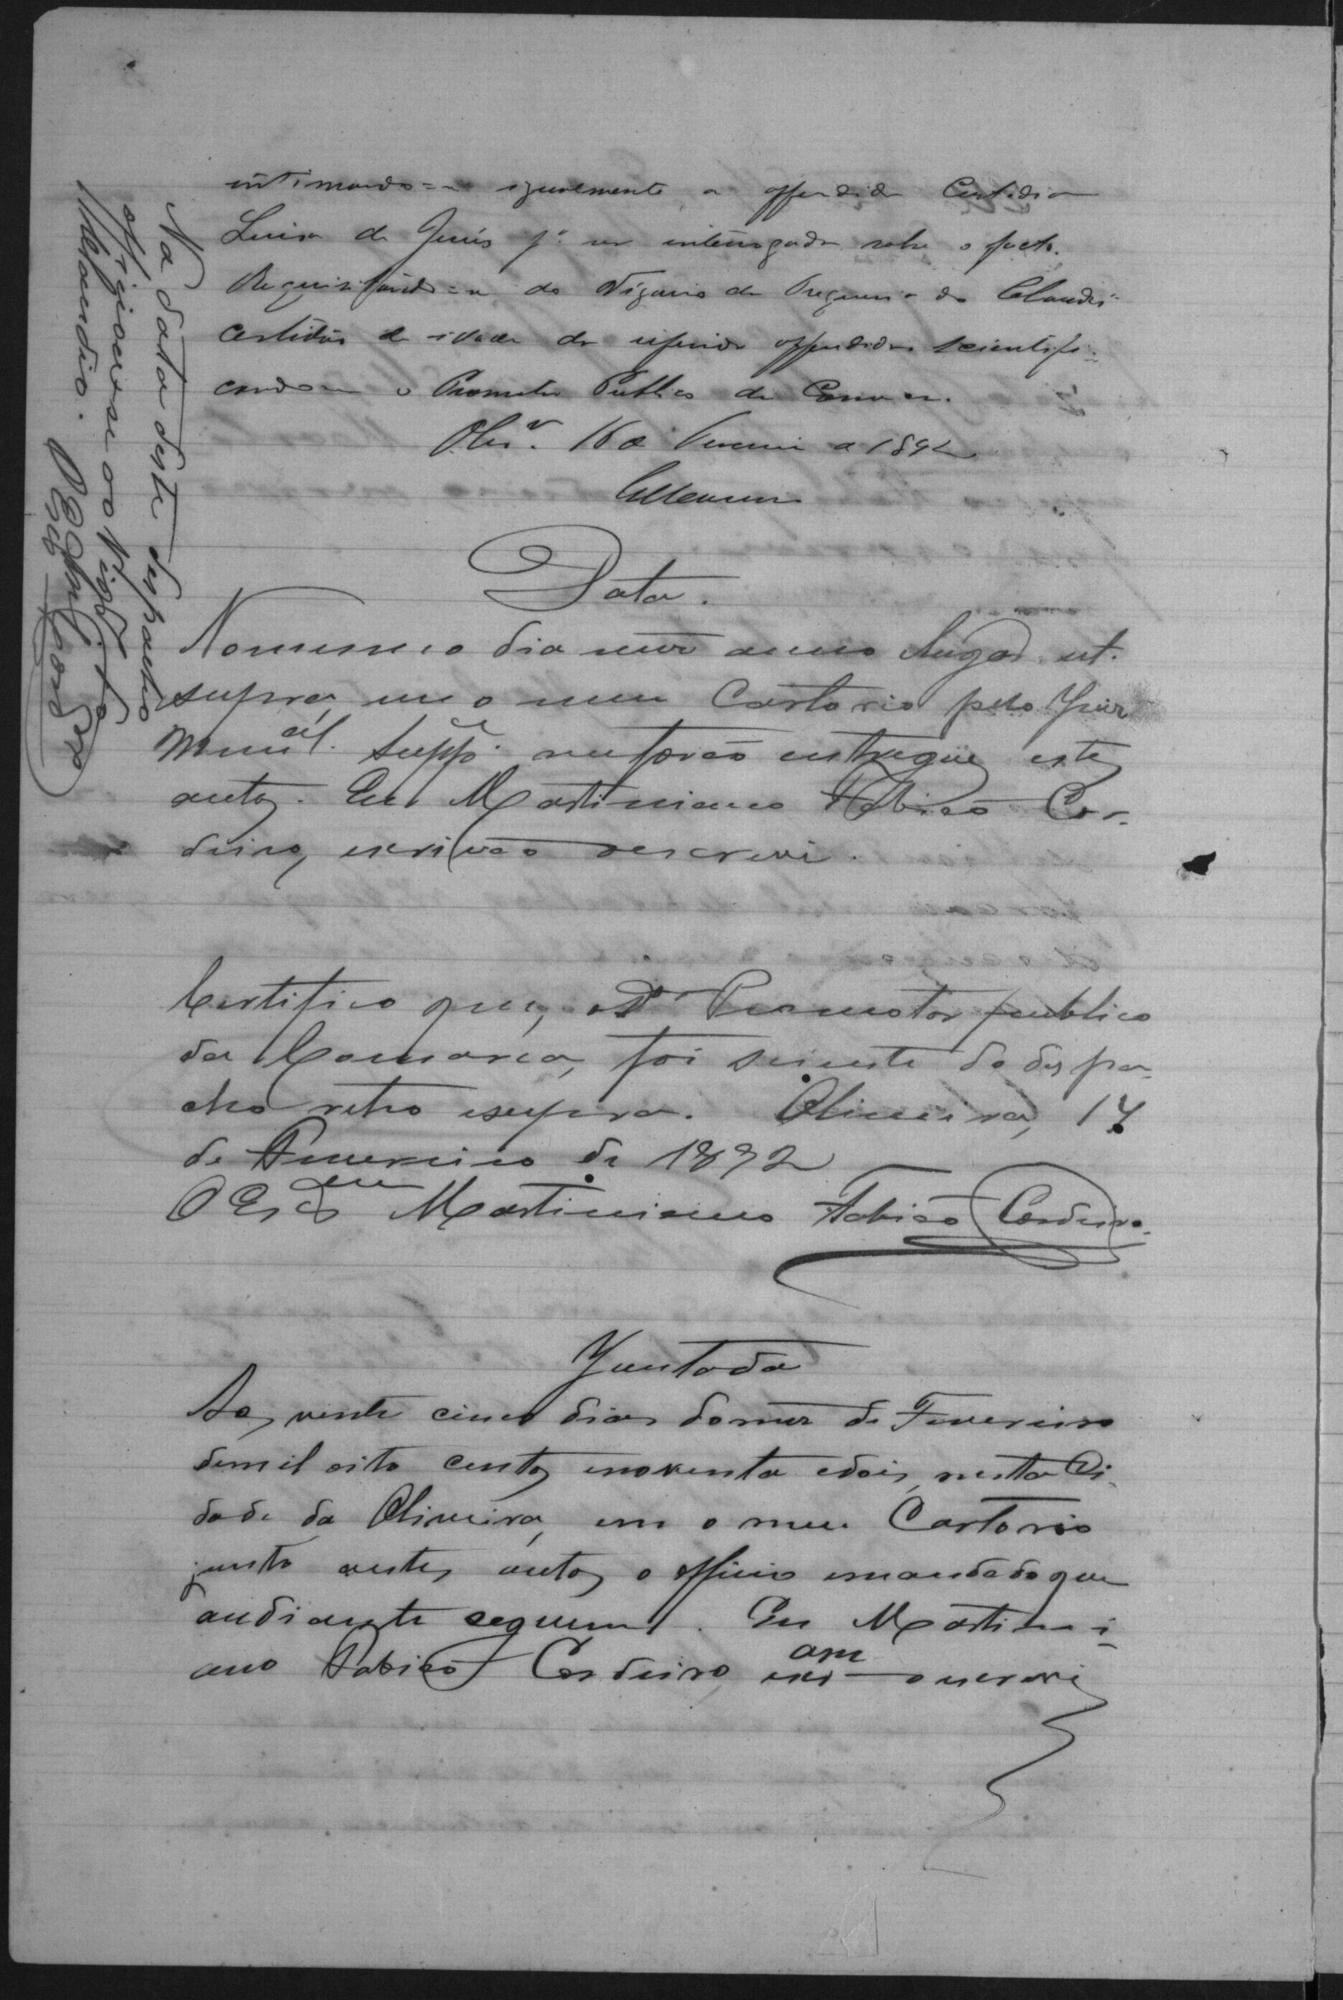 intimando-se igualmente a offendida Custodia
Luisa de Jesús pa. ser interrogada sobre o facto.
Requisitando-se do Vigario da Freguesia do Claudio
certidão de idade da referida offendida, scientifi-
cando-se o Promotor Publico da Comarca.
Olivra. 16 de Fevereiro de 1892
Data.
No mesmo dia mez anno lugar ut.
supra, em o meu Cartorio pelo Juiz
Munal. Suppe. me forão entregues estes
autos. Eu Martiniano Fabião Cor-
deiro, escrivão o escrevi.
Certifico que, o Dr Promotor publico
da Comarca, foi sciente do despa-
cho retro e supra. Oliveira, 17
de Fevereiro de 1892
O Escram Martiniano Fabião Cordeiro.
Juntada
Aos vinte cinco dias do mez de Fevereiro
de mil oito centos e noventa e dois, nesta Ci-
dade da Oliveira, em o meu Cartorio
junto a estes autos o officio e mandado que
audiante seguem. Eu Martini-
ano Fabião Cordeiro, escram o escrevi
Na data deste despacho
officiou-se ao Vigro. do
Claudio. O Escram Cordeiro